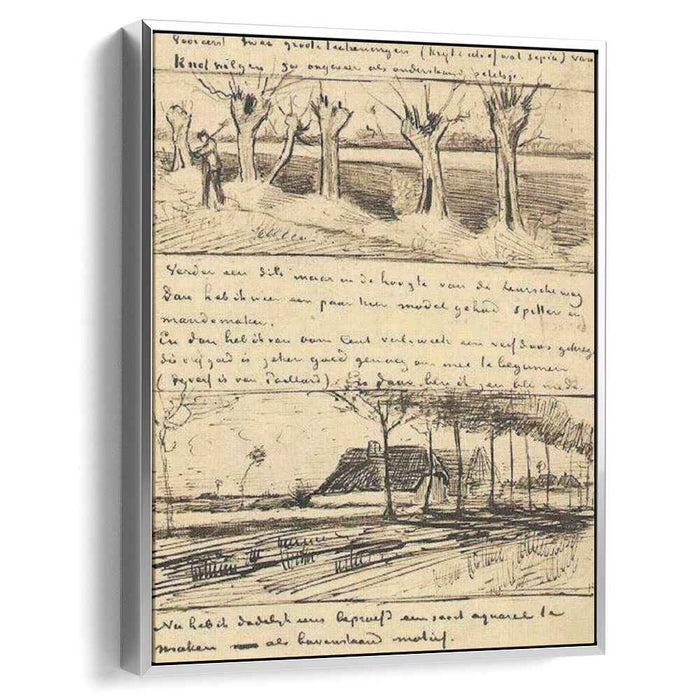 Vooreerst twee groote teekeningen (krijt en of wat sepia) van
Knotwilgen zoo ongeveer als onderstaand
Verder een dito maar in de hoogte van de Leursche weg
Dan heb ik weer een paar keer model gehad Spitter en
mandemaker.
En dan heb ik van oom Cent verl. week een verfdoos gekreg
die vrij goed is zeker goed genoeg om mee te beginnen
(de verf is van Paillard). En daar ben ik zeer blij mede.
Nu heb ik dadelijk eens beproefd een soort aquarel te
maken als bovenstaand motief.